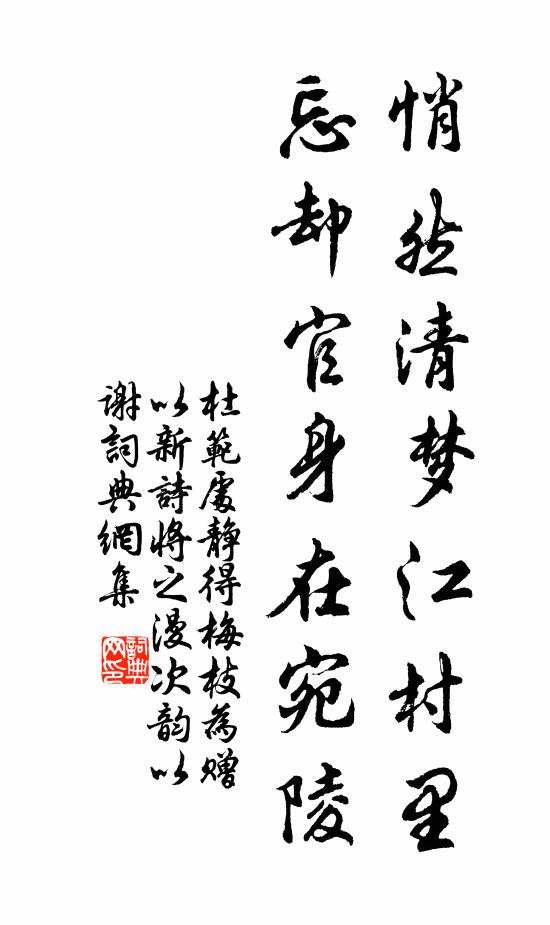 悄然清梦江村里
忘却官身在宛陵
杜範處静得梅枝為赠
以新詩将之漫次韵以
谢詞典網集
詞典
网印